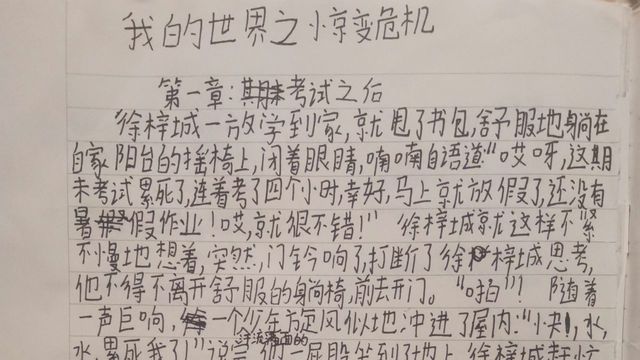 我的世界之惊变危机
第一章:期末考试之后
徐梓城一放学到家,就甩了书包,舒服地躺在
自家阳台的摇椅上,闭着眼睛,喃喃自语道:“哎呀,这期
末考试累死了,连着考了四个小时,幸好,马上就放假了,还没有
暑假作业!哎,就很不错!” 徐梓城就这样不紧
不慢地想着,突然,门铃响了,打断了徐梓城思考,
他不得不离开舒服的躺椅,前去开门。“啪”!随着
一声巨响,一个少年旋风似地冲进了屋内:“快,水,
水,累死我了!”说完,他一屁股坐到了地上,徐梓城赶忙